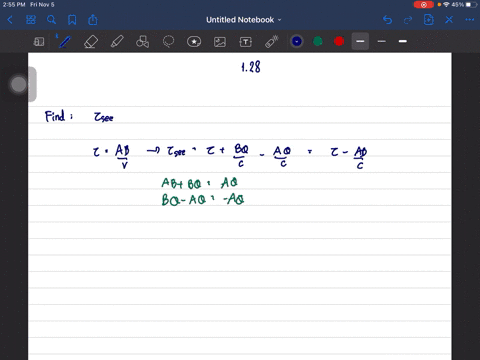 2:55 PM Fri Nov 5
45%
Untitled Notebook
1.28
Find: τsee
τ = AB/v → τsee = τ + BQ/c - AQ/c = τ - AB/c
AB + BQ = AQ
BQ - AQ = -AQ